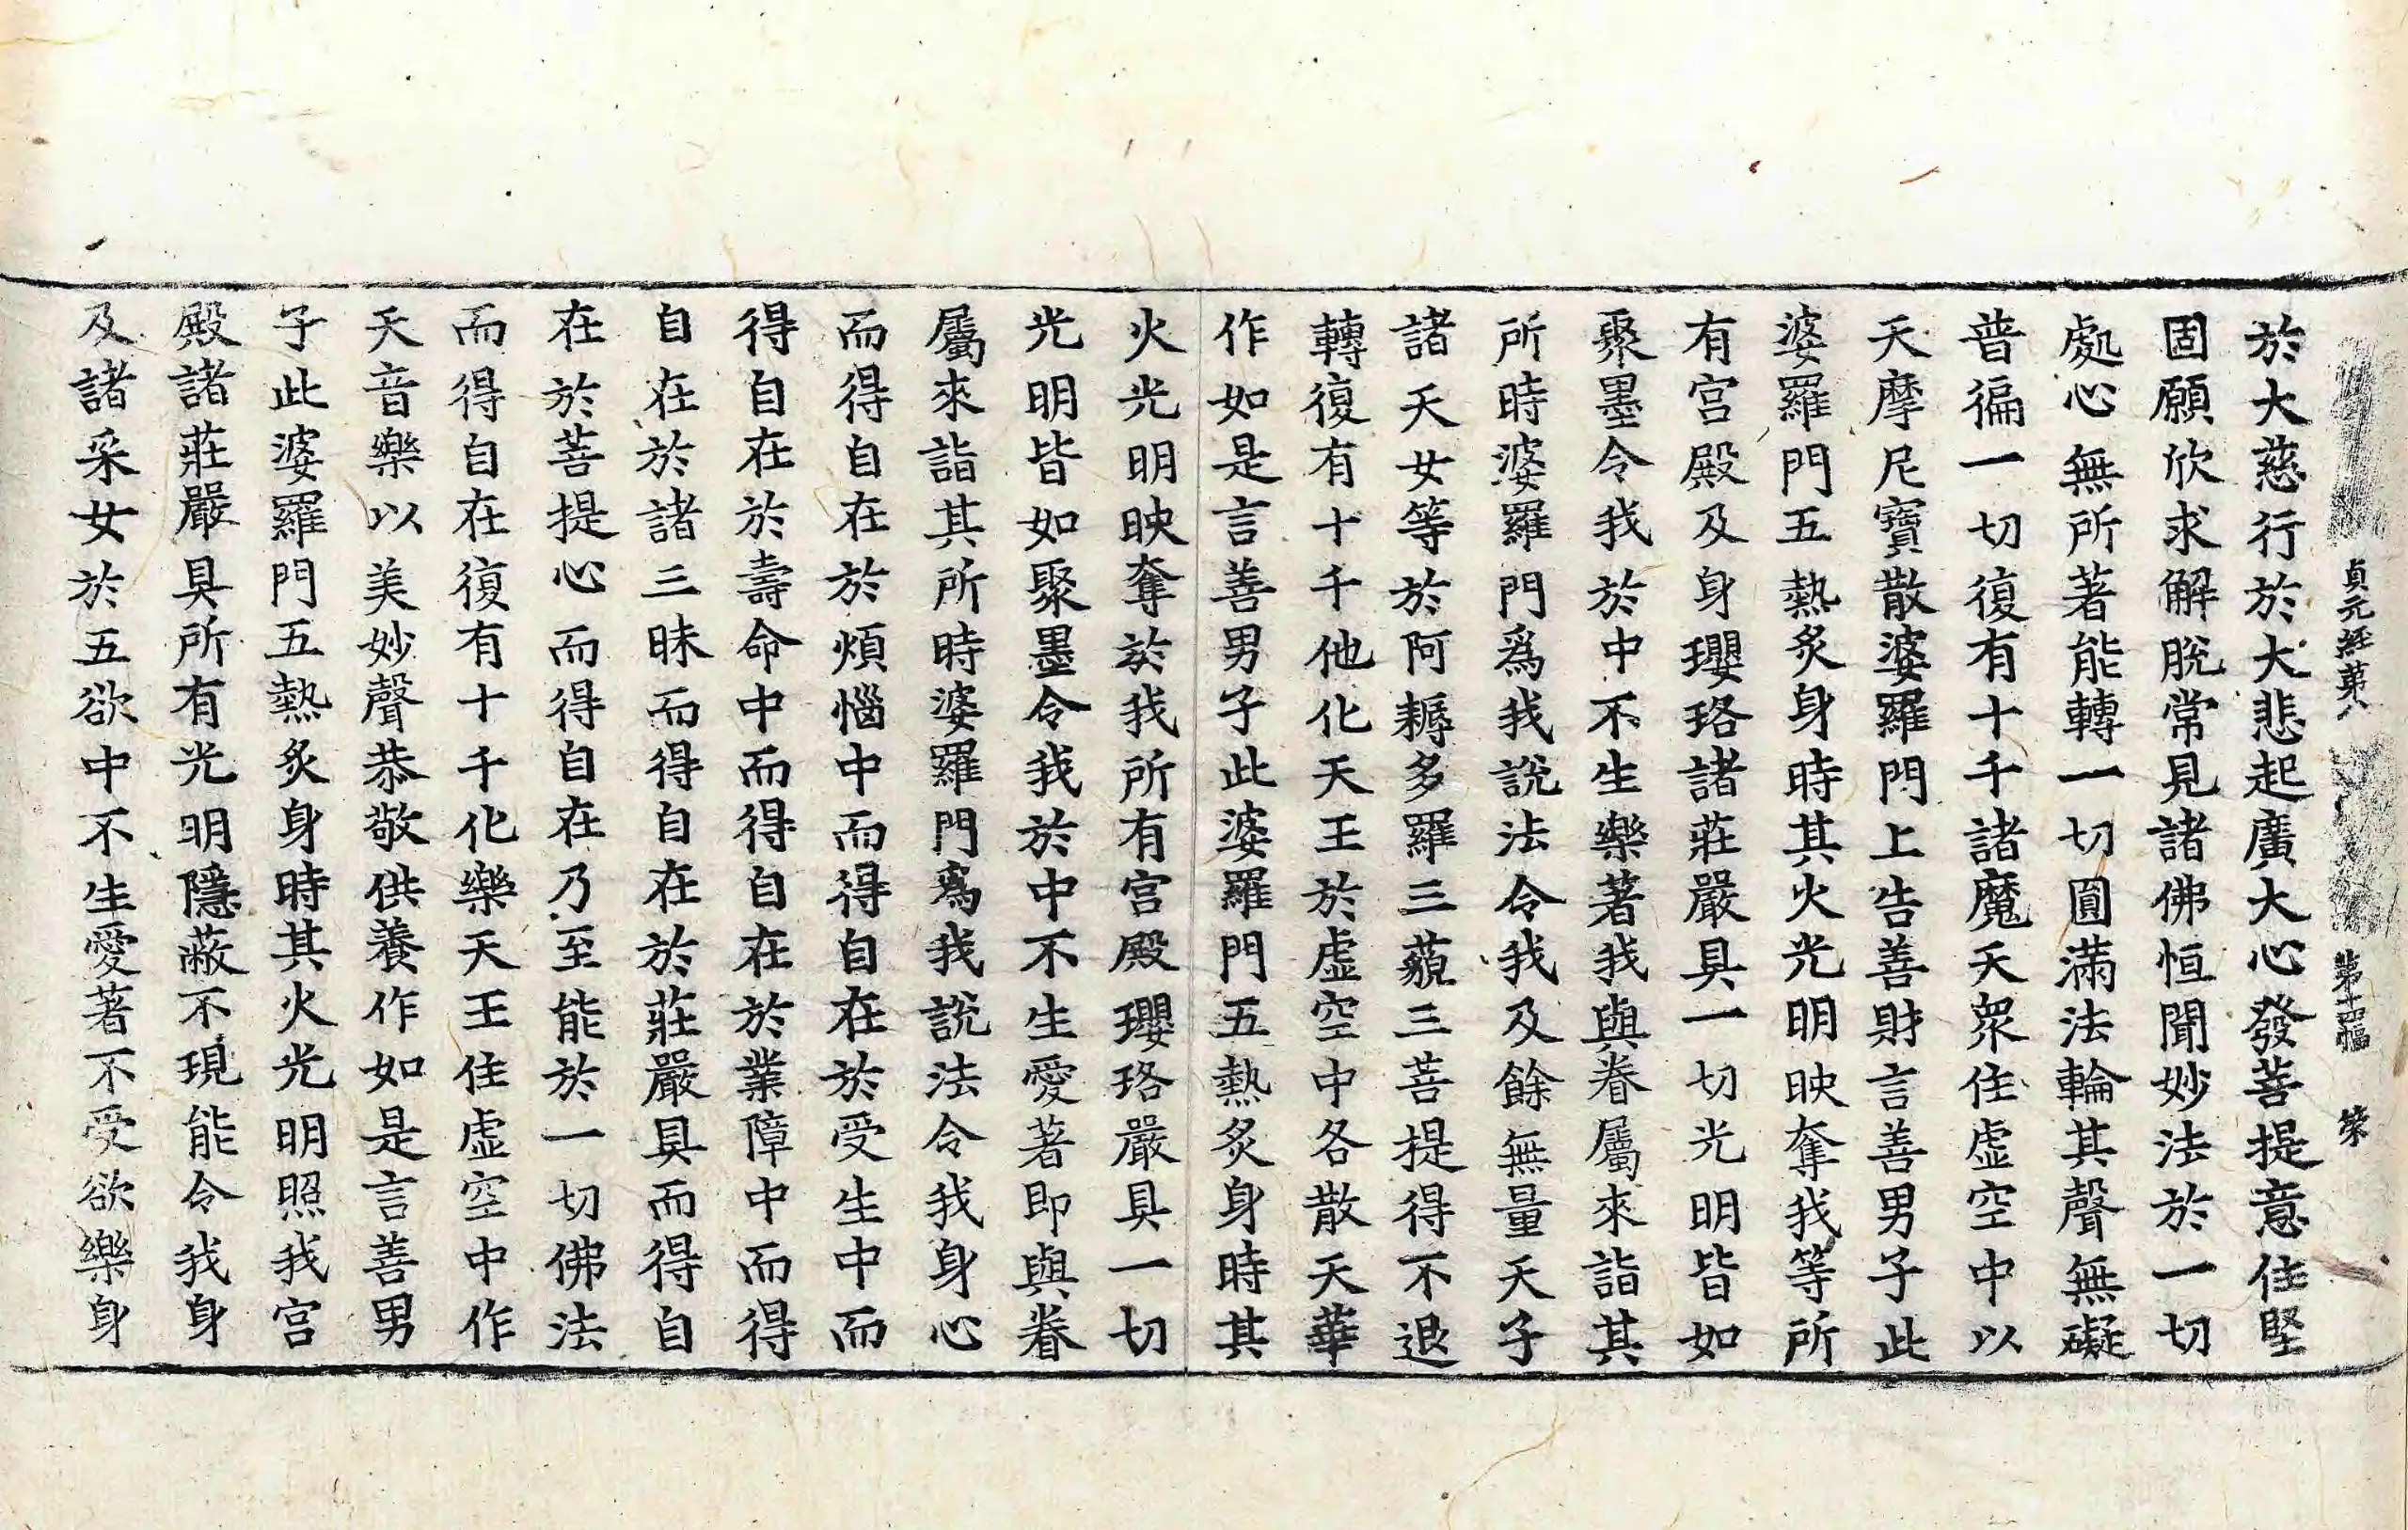 貞元經第八　第十四幅　榮
於大慈行於大悲起廣大心發菩提意住堅
固願欣求解脫常見諸佛恒聞妙法於一切
處心無所著能轉一切圓滿法輪其聲無礙
普徧一切復有十千諸魔天衆住虛空中以
天摩尼寶散婆羅門上告善財言善男子此
婆羅門五熱炙身時其火光明映奪我等所
有宮殿及身瓔珞諸莊嚴具一切光明皆如
聚墨令我於中不生樂著我與眷屬來詣其
所時婆羅門爲我說法令我及餘無量天子
諸天女等於阿耨多羅三藐三菩提得不退
轉復有十千他化天王於虛空中各散天華
作如是言善男子此婆羅門五熱炙身時其
火光明映奪於我所有宮殿瓔珞嚴具一切
光明皆如聚墨令我於中不生愛著即與眷
屬來詣其所時婆羅門爲我說法令我身心
而得自在於煩惱中而得自在於受生中而
得自在於壽命中而得自在於業障中而得
自在於諸三昧而得自在於莊嚴具而得自
在於菩提心而得自在乃至能於一切佛法
而得自在復有十千化樂天王住虛空中作
天音樂以美妙聲恭敬供養作如是言善男
子此婆羅門五熱炙身時其火光明照我宮
殿諸莊嚴具所有光明隱蔽不現能令我身
及諸采女於五欲中不生愛著不受欲樂身